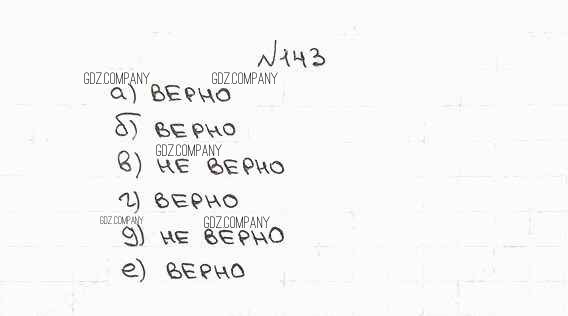 №143
GDZ.COMPANY GDZ.COMPANY
а) ВЕРНО
б) ВЕРНО
GDZ.COMPANY
в) НЕ ВЕРНО
г) ВЕРНО
GDZ.COMPANY GDZ.COMPANY
д) НЕ ВЕРНО
е) ВЕРНО